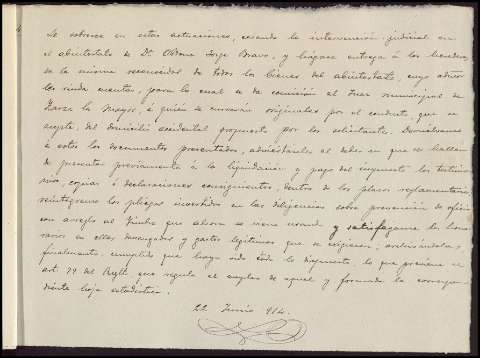 Se sobresee en estas actuaciones, cesando la intervención judicial en
el abintestato de Dª Obtona Jorge Bravo, y hágase entrega á los herederos
de la misma reconocidos de todos los bienes del abintestato, cuyo admor
les rinda cuentas, para lo cual se da comisión al Juez municipal de
Zarza la Mayor, á quien se enviarán originales por el conducto, que se
acepta, del domicilio accidental propuesto por los solicitante. Devuélvanse
á estos los documentos presentados, advirtiéndoles el deber en que se hallan
de presentar previamente á la liquidación y pago del impuesto los testimo-
nios, copias ó declaraciones consiguientes, dentro de los plazos reglamentarios,
reintégrense los pliegos invertidos en las diligencias sobre prevención de oficio
con arreglo al Timbre que ahora se viene usando y satisfáganse los hono-
rarios en ellas devengados y gastos legítimos que se exigieren; archívándolas,
finalmente, cumplido que haya sido todo lo dispuesto, lo que previene el
art. 79 del Reglto, que regula el empleo de aquel y formada la correspon-
diente hoja estadística.
22 Junio 914.